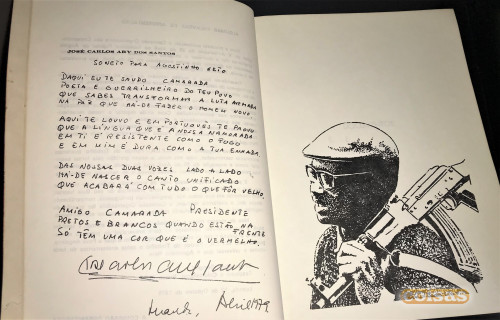 JOSÉ CARLOS ARY DOS SANTOS
SONETO PARA AGOSTINHO NETO
DAQUI EU TE SAÚDO CAMARADA
POETA E GUERRILHEIRO DO TEU POVO
QUE SABES TRANSFORMAR A LUTA ARMADA
NA PAZ QUE HÁ-DE FAZER O HOMEM NOVO
AQUI TE LOUVO E EM PORTUGUÊS TE PROVO
QUE A LÍNGUA QUE É A NOSSA NAMORADA
EM TI É RESISTENTE COMO O FOGO
E EM MIM É DURA COMO A TUA ENXADA.
DAS NOSSAS DUAS VOZES LADO A LADO
HÁ-DE NASCER O CANTO UNIFICADO
QUE ACABARÁ COM TUDO O QUE FÔR VELHO.
AMIGO CAMARADA PRESIDENTE
PRETOS E BRANCOS QUANDO ESTÃO NA FRENTE
SÓ TÊM UMA COR QUE É O VERMELHO.
coisas